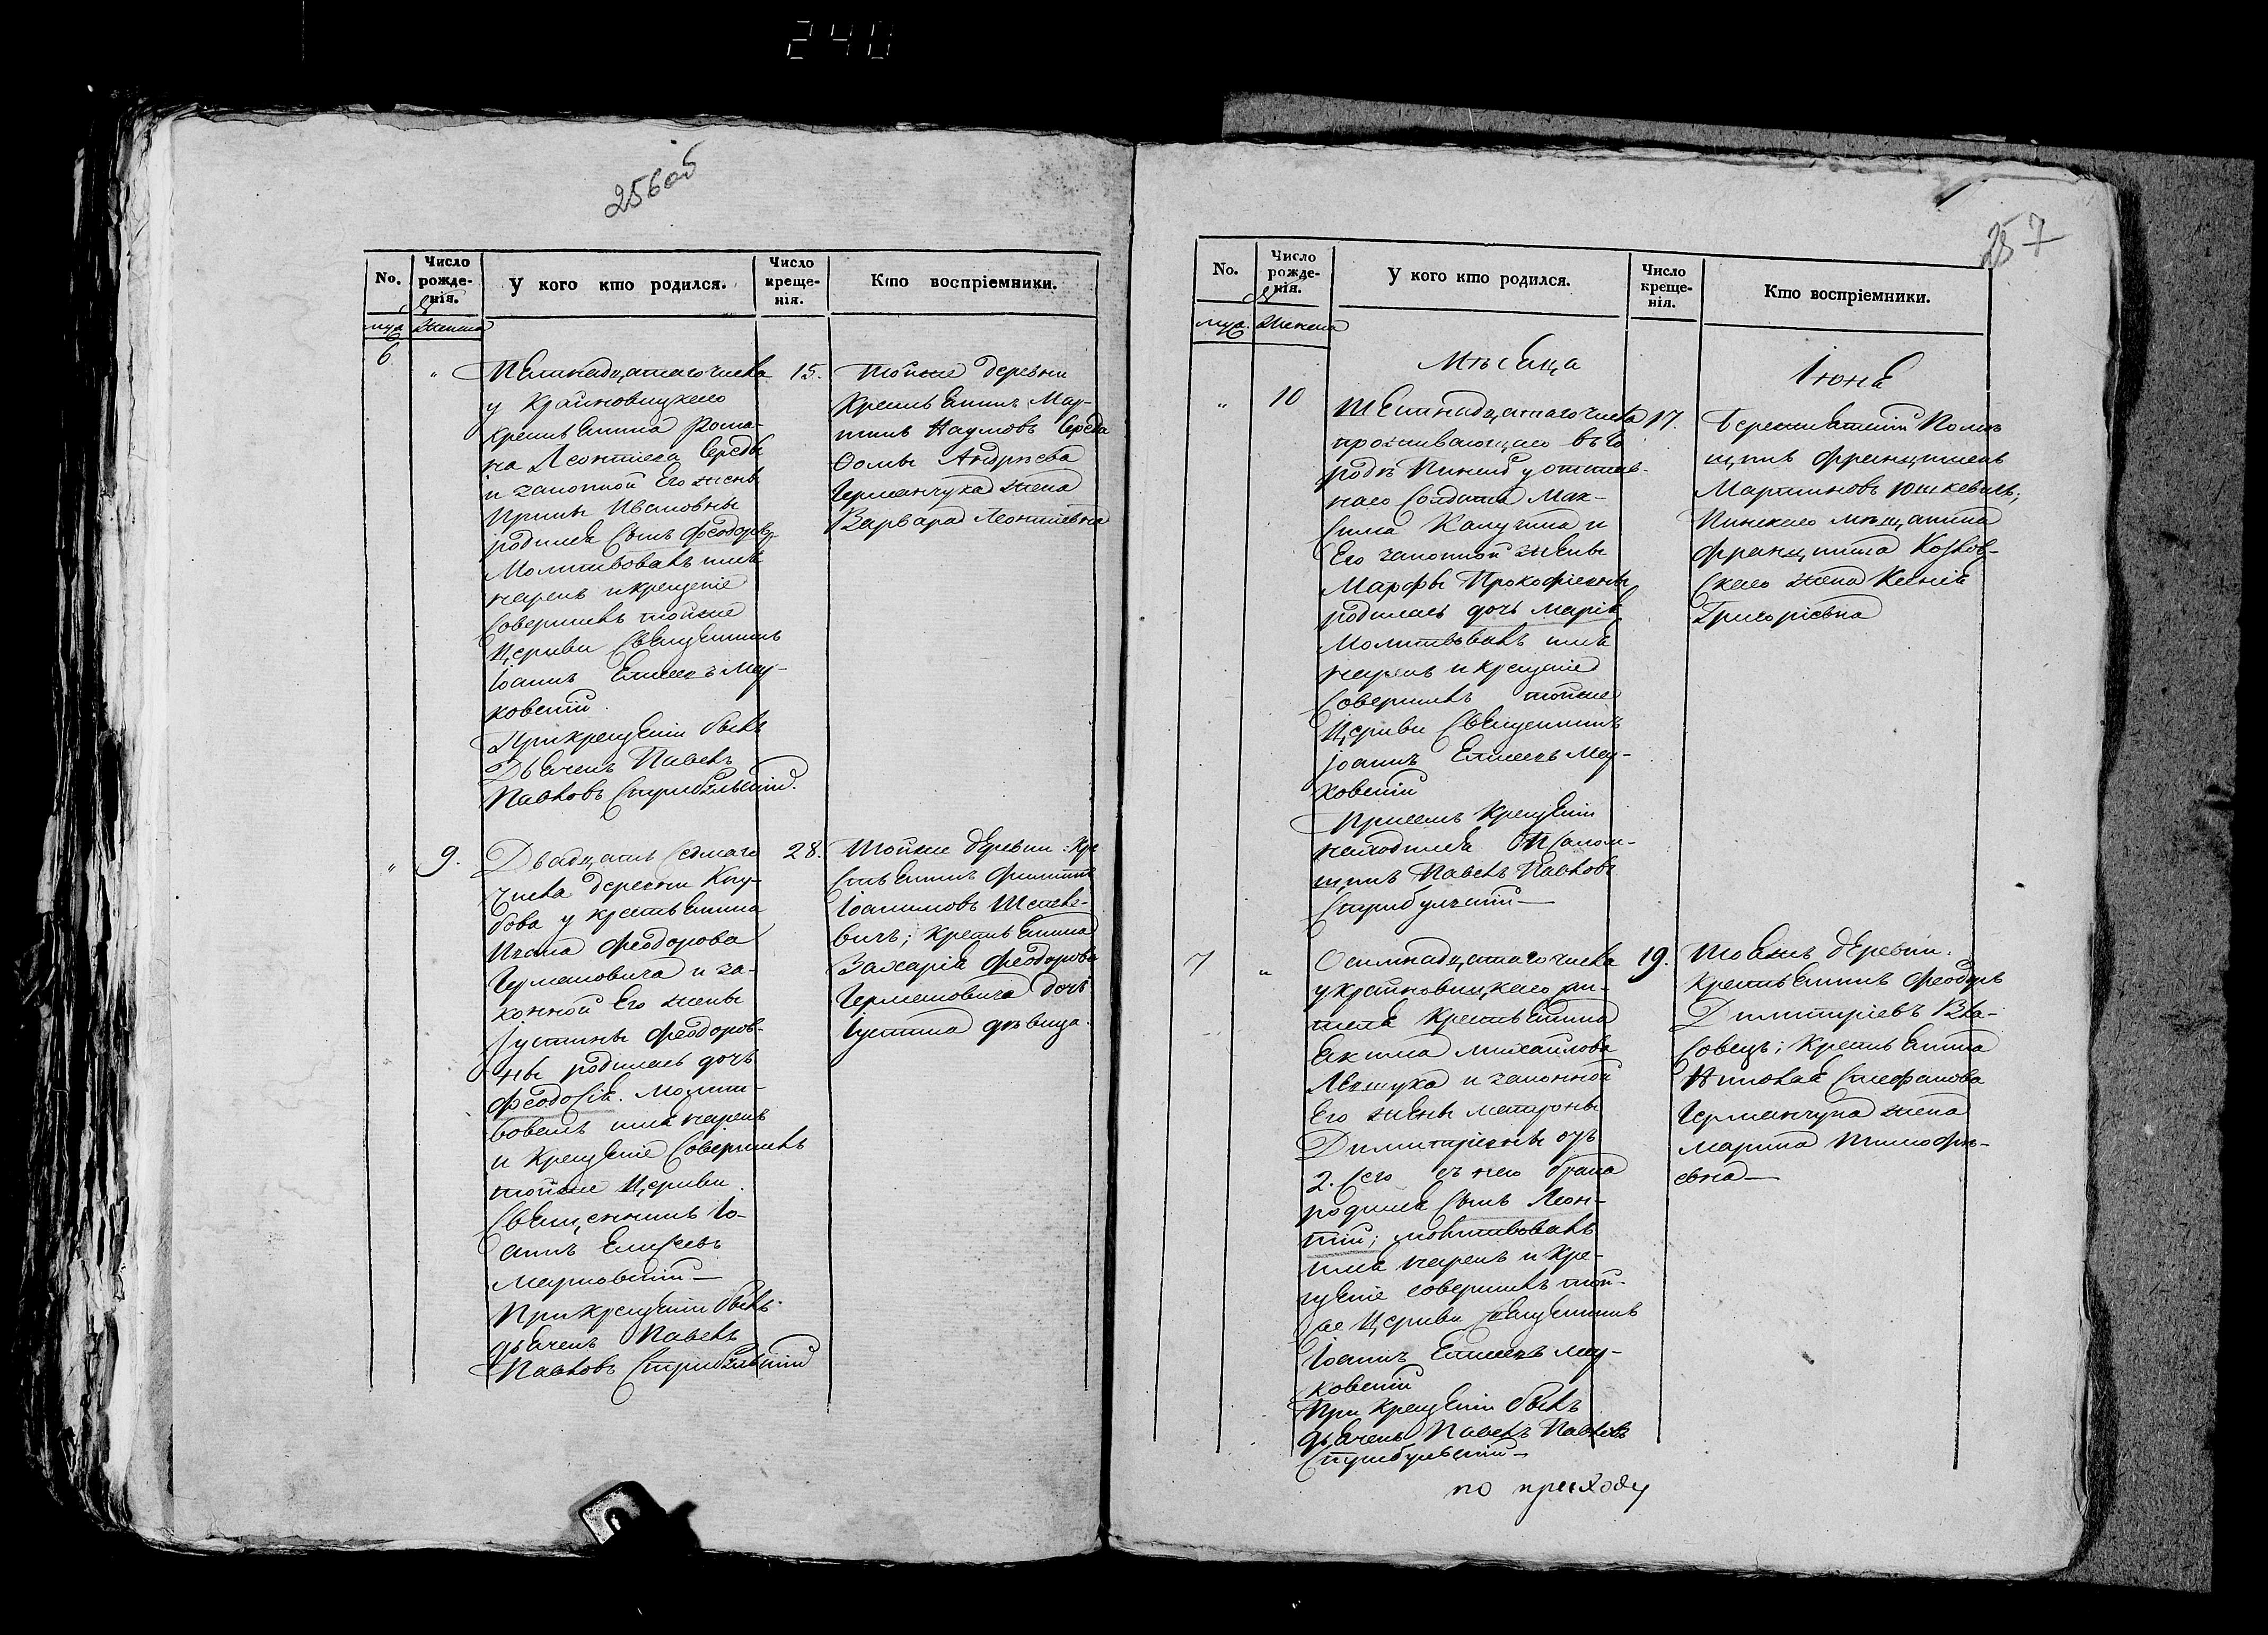 240
256об
No. Число рожденія. У кого кто родился. Число крещенія. Кто воспріемники.
муж. женска
6
" 15.
у Крайновицкаго
крестьянина Рома-
на Леонтіева Середы
и законной Его жены
Ирины Ивановны
родился сынъ Феодоръ
Молитвовалъ имя
нарекъ и крещеніе
совершилъ тойже
Церкви Священникъ
Іоаннъ Елисеевъ Мар-
ковскій.
При крещеніи былъ
Дьячекъ Павелъ
Павловъ
Тойже деревни
Крестьянинъ Мар-
тинъ Наумовъ Середа
Ѳомы Андрѣева
Германчука жена
Варвара Леонтьевна
" 9. Двадцать седмаго 28.
числа деревни
у крестьянина
Ивана Феодорова
Германовича и за-
конной Его жены
Іустины Феодоров-
ны родилась дочь
Феодосія. Молит-
вовалъ имя нарекъ
и Крещеніе Совершилъ
тойже Церкви
Священникъ Іо-
аннъ Елисеевъ
Марковскій—
При крещеніи былъ
дьячекъ Павелъ
Павловъ
Тойже деревни: Кре
стьянинъ Филиппъ
Іоакимовъ
вичъ; крестьянина
Захарія Феодорова
Германовича дочь
Іустина дѣвица.
257
No. Число рожденія. У кого кто родился. Число крещенія. Кто воспріемники.
муж. женска
Мѣсяца Іюня
" 10 Шестнадцатаго числа 17.
проживающаго въ го
родѣ Пинскѣ у отстав-
наго Солдата Мак-
сима Калугина и
Его законной жены
Марфы Прокофіевны
родилась дочь Марія
Молитвовалъ имя
нарекъ и крещеніе
совершилъ тойже
Церкви Священникъ
Іоаннъ Елисеевъ Мар-
ковскій
При семъ Крещеніи
находился Псалом-
щикъ Павелъ Павловъ
Францишекъ
Мартиновъ Юшкевичъ;
Пинскаго мѣщанина
Францишка Козлов-
скаго жена Ксенія
Григорьевна
7 " Осимнадцатаго числа 19.
у крайновицкаго жи-
теля Крестьянина
Екима Михайлова
Левчука и законной
Его жены Матроны
Димитріевны отъ
2. сего съ нею брака
родился сынъ Леон-
тій; молитвовалъ
имя нарекъ и кре-
щеніе совершилъ той-
же Церкви Священникъ
Іоаннъ Елисеевъ Мар-
ковскій
При крещеніи былъ
дьячекъ Павелъ Павловъ
крестьянинъ Феодоръ
Димитріевъ Вла-
совецъ; Крестьянина
Николая Стефанова
Германчука жена
Марина Тимофѣ-
евна—
по приходу